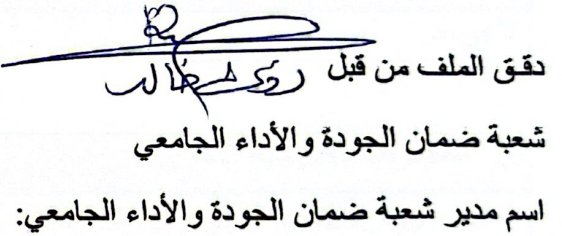 دقق الملف من قبل
شعبة ضمان الجودة والأداء الجامعي
اسم مدير شعبة ضمان الجودة والأداء الجامعي: